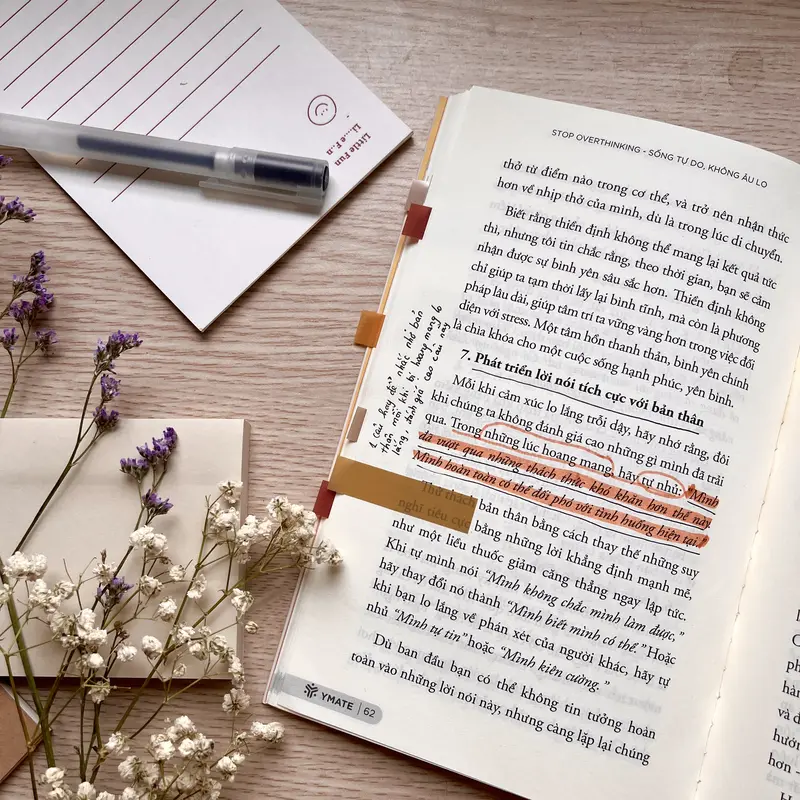 Little Fun
STOP OVERTHINKING - SỐNG TỰ DO, KHÔNG ÂU LO
thở từ điểm nào trong cơ thể, và trở nên nhận thức
hơn về nhịp thở của mình, dù là trong lúc di chuyển.
Biết rằng thiền định không thể mang lại kết quả tức
thì, nhưng tôi tin chắc rằng, theo thời gian, bạn sẽ cảm
nhận được sự bình yên sâu sắc hơn. Thiền định không
chỉ giúp ta tạm thời lấy lại bình tĩnh, mà còn là phương
pháp lâu dài, giúp tâm trí ta vững vàng hơn trong việc đối
diện với stress. Một tâm hồn thanh thản, bình yên chính
là chìa khóa cho một cuộc sống hạnh phúc, yên bình.
7. Phát triển lời nói tích cực với bản thân
Mỗi khi cảm xúc lo lắng trỗi dậy, hãy nhớ rằng, đôi
khi chúng ta không đánh giá cao những gì mình đã trải
qua. Trong những lúc hoang mang, hãy tự nhủ: "Mình
đã vượt qua những thách thức khó khăn hơn thế này.
Mình hoàn toàn có thể đối phó với tình huống hiện tại."
Thử thách bản thân bằng cách thay thế những suy
nghĩ tiêu cực bằng những lời khẳng định mạnh mẽ,
như một liều thuốc giảm căng thẳng ngay lập tức.
Khi tự mình nói "Mình không chắc mình làm được,"
hãy thay đổi nó thành "Mình biết mình có thể." Hoặc
khi bạn lo lắng về phán xét của người khác, hãy tự
nhủ "Mình tự tin" hoặc "Mình kiên cường."
Dù ban đầu bạn có thể không tin tưởng hoàn
toàn vào những lời nói này, nhưng càng lặp lại chúng
YMATE | 62
1 câu hay để nhắc nhở bản
thân mỗi khi bị hoang mang lo
lắng, đánh giá cao câu này